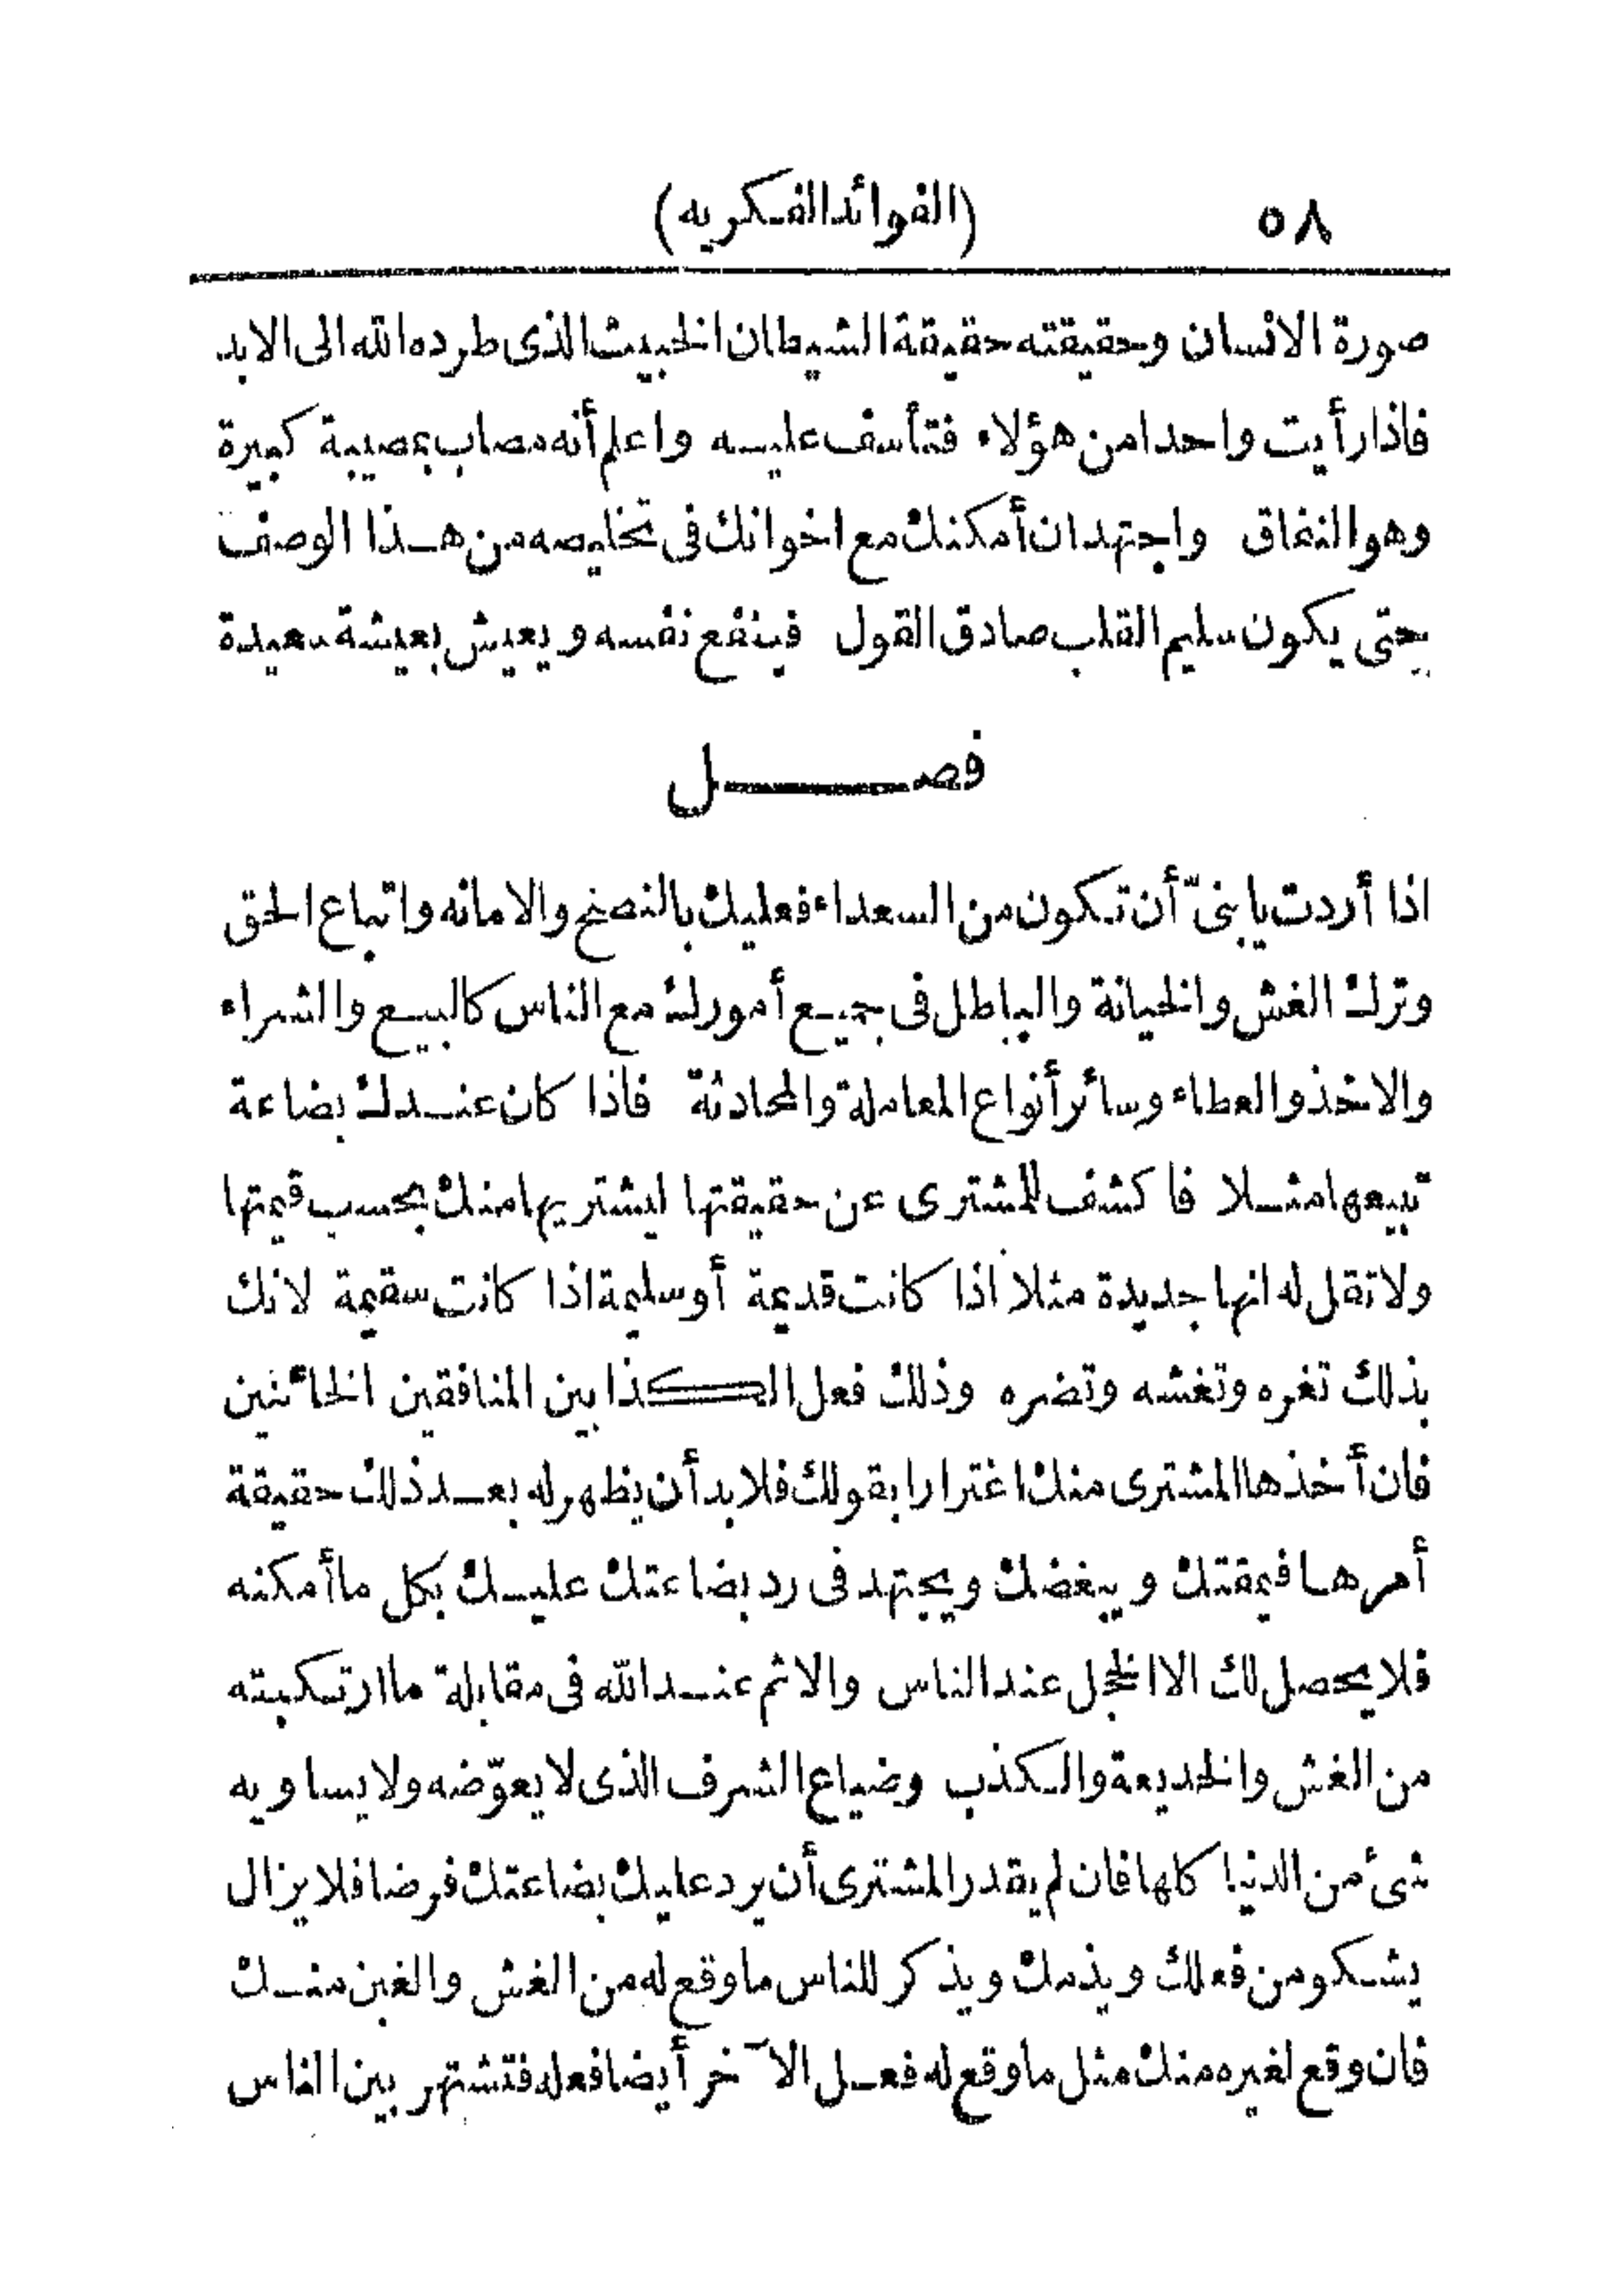 ٥٨ (الفوائد الفكريه)
صورة الانسان وحقيقته حقيقة الشيطان الخبيث الذى طرده الله الى الابد
فاذا رأيت واحدا من هؤلاء فتأسف عليه واعلم أنه مصاب بمصيبة كبيرة
وهو النفاق واجتهد ان أمكنك مع اخوانك فى تخليصه من هذا الوصف
حتى يكون سليم القلب صادق القول فينفع نفسه ويعيش بعيشة سعيدة
فصل
اذا أردت يا بنىّ أن تكون من السعداء فعليك بالنصح والامانه واتباع الحق
وترك الغش والخيانة والباطل فى جميع أمورك مع الناس كالبيع والشراء
والاخذ والعطاء وسائر أنواع المعاملة والمحادثة فاذا كان عندك بضاعة
تبيعها مثلا فاكشف للمشترى عن حقيقتها ليشتريها منك بحسب قيمتها
ولا تقل له انها جديدة مثلا اذا كانت قديمة أو سليمة اذا كانت سقيمة لانك
بذلك تغره وتغشه وتضره وذلك فعل الكذابين المنافقين الخائنين
فان أخذها المشترى منك اغترارا بقولك فلا بد أن يظهر له بعد ذلك حقيقة
أمرها فيمقتك ويبغضك ويجتهد فى رد بضاعتك عليك بكل ما أمكنه
فلا يحصل لك الا الخجل عند الناس والاثم عند الله فى مقابلة ما ارتكبته
من الغش والخديعة والكذب وضياع الشرف الذى لا يعوّضه ولا يساويه
شئ من الدنيا كلها فان لم يقدر المشترى أن يرد عليك بضاعتك فرضا فلا يزال
يشكو من فعلك ويذمك ويذكر للناس ما وقع له من الغش والغبن منك
فان وقع لغيره منك مثل ما وقع له فعل الآخر أيضا فعله فتشتهر بين الناس